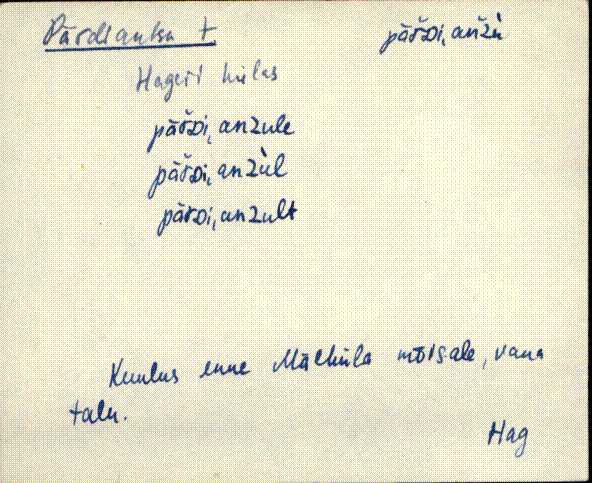 Pärdiantsu t.
päřDi, anžù
Hageri külas
päřDi, anžule
päřDi, anžùl
päřDi, anžult
Kuulus enne Mäeküla mõisale, vana
talu.
Hag